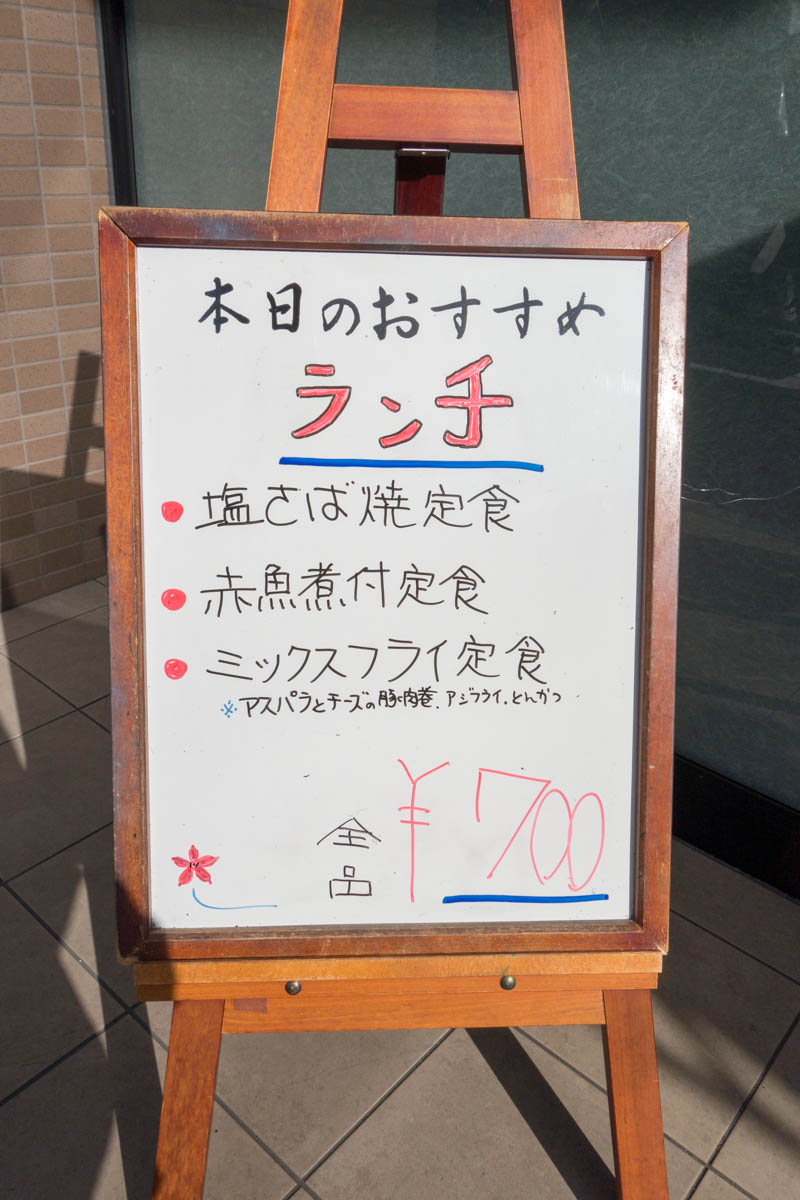 本日のおすすめ
ランチ
● 塩さば焼定食
● 赤魚煮付定食
● ミックスフライ定食
※アスパラとチーズの豚肉巻、アジフライ、とんかつ
全品 ¥700